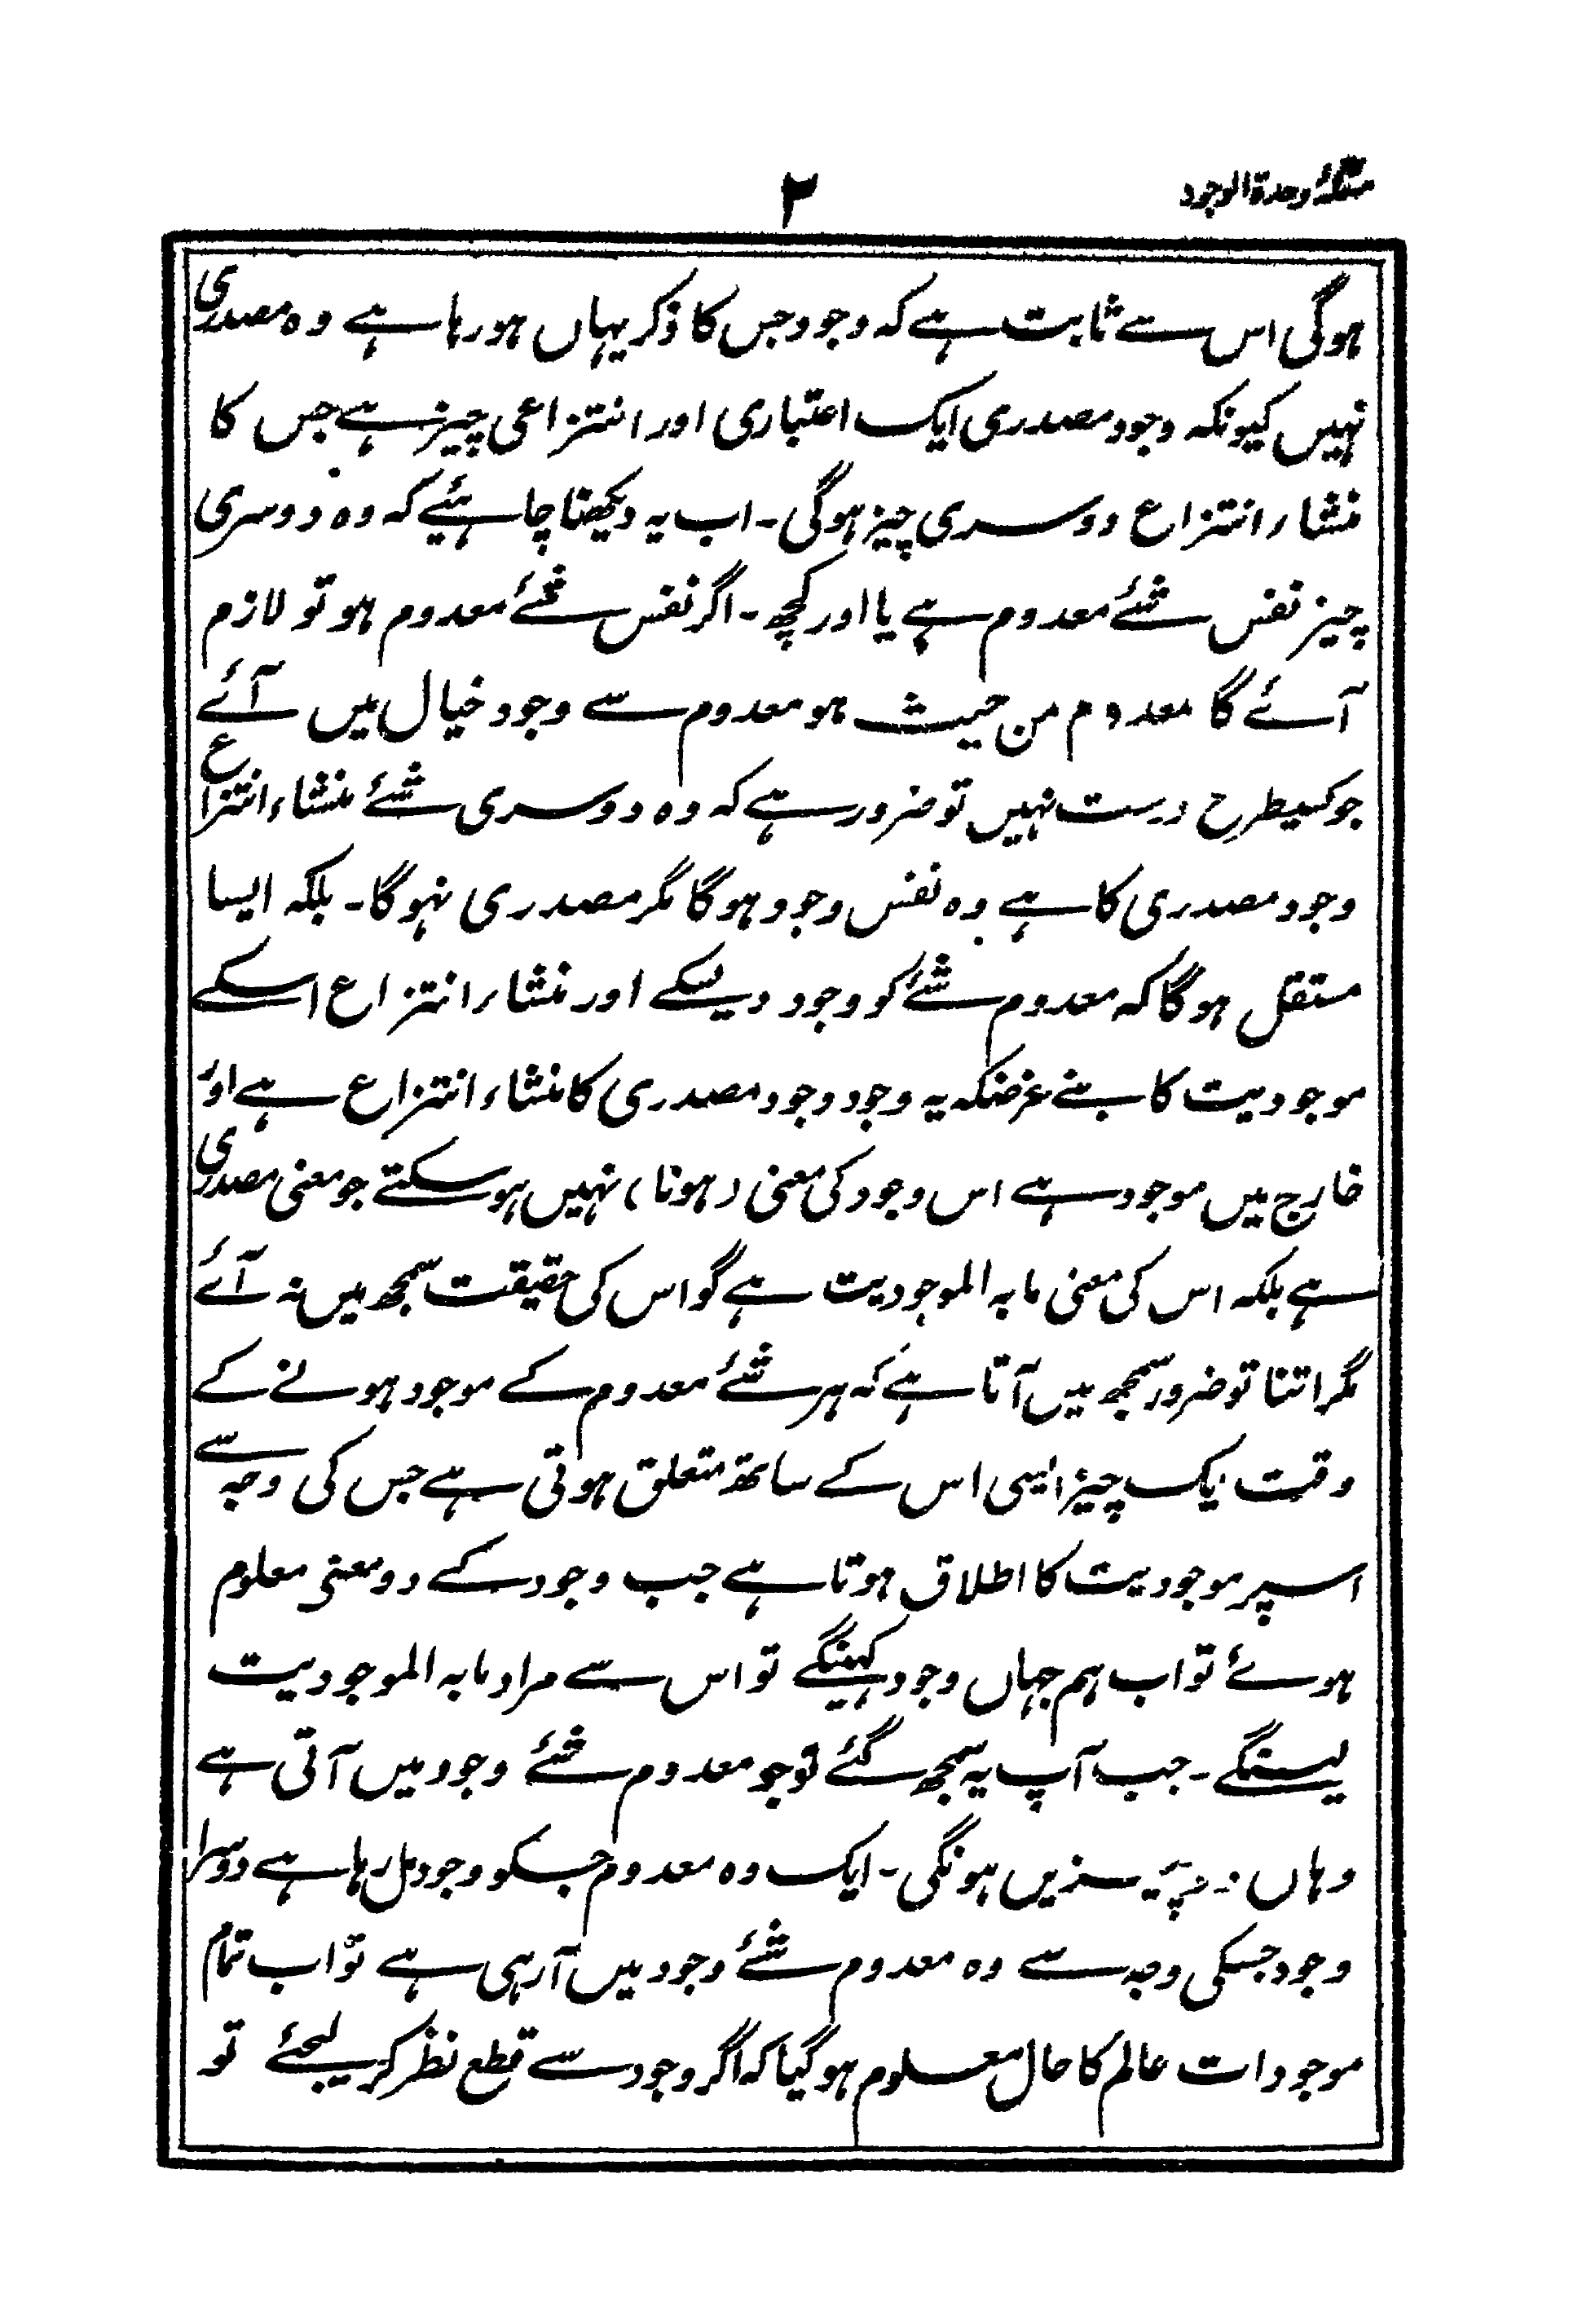 مسئلۂ وحدۃ الوجود
۲
ہوگی اس سے ثابت ہے کہ وجود جس کا ذکر یہاں ہورہا ہے وہ مصدری
نہیں کیونکہ وجود مصدری ایک اعتباری اور انتزاعی چیز ہے جس کا
منشاء انتزاع دوسری چیز ہوگی ۔ اب یہ دیکھنا چاہئیے کہ وہ دوسری
چیز نفس شئے معدوم ہے یا اور کچھ ۔ اگر نفس شئے معدوم ہو تو لازم
آئے گا معدوم من حیث ہو معدوم سے وجود خیال میں آئے
جو کسیطرح درست نہیں تو ضرور ہے کہ وہ دوسری شئے منشاء انتزاع
وجود مصدری کا ہے وہ نفس وجود ہوگا مگر مصدری نہوگا ۔ بلکہ ایسا
مستقل ہوگا کہ معدوم شئے کو وجود دیسکے اور منشاء انتزاع اسکے
موجودیت کا بنے غرضکہ یہ وجود وجود مصدری کا منشاء انتزاع ہے اور
خارج میں موجود ہے اس وجود کی معنی (ہونا) نہیں ہوسکتے جو معنی مصدری
ہے بلکہ اس کی معنی مابہ الموجودیت ہے گو اس کی حقیقت سمجھ میں نہ آئے
مگر اتنا تو ضرور سمجھ میں آتا ہے کہ ہر شئے معدوم کے موجود ہونے کے
وقت یک چیز ایسی اس کے ساتھ متعلق ہوتی ہے جس کی وجہ سے
اسپر موجودیت کا اطلاق ہوتا ہے جب وجود کے دو معنی معلوم
ہوئے تو اب ہم جہاں وجود کہینگے تو اس سے مراد مابہ الموجودیت
لیسنگے ۔ جب آپ یہ سمجھ گئے تو جو معدوم شئے وجود میں آتی ہے
وہاں ہونگی ۔ ایک وہ معدوم جسکو وجود مل رہا ہے دوسرا
وجود جسکی وجہ سے وہ معدوم شئے وجود میں آرہی ہے تو اب تمام
موجودات عالم کا حال معلوم ہوگیا کہ اگر وجود سے قطع نظر کر لیجئے تو